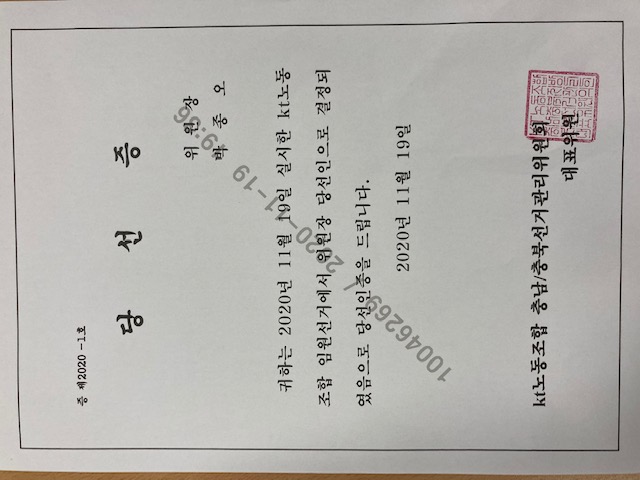 증 제2020 -1호
당 선 증
위 원 장
박 종 오
귀하는 2020년 11월 19일 실시한 kt노동
조합 임원선거에서 위원장 당선인으로 결정되
었음으로 당선인증을 드립니다.
2020년 11월 19일
kt노동조합 충남/충북선거관리위원회
대표위원
10046269 / 2020-11-19